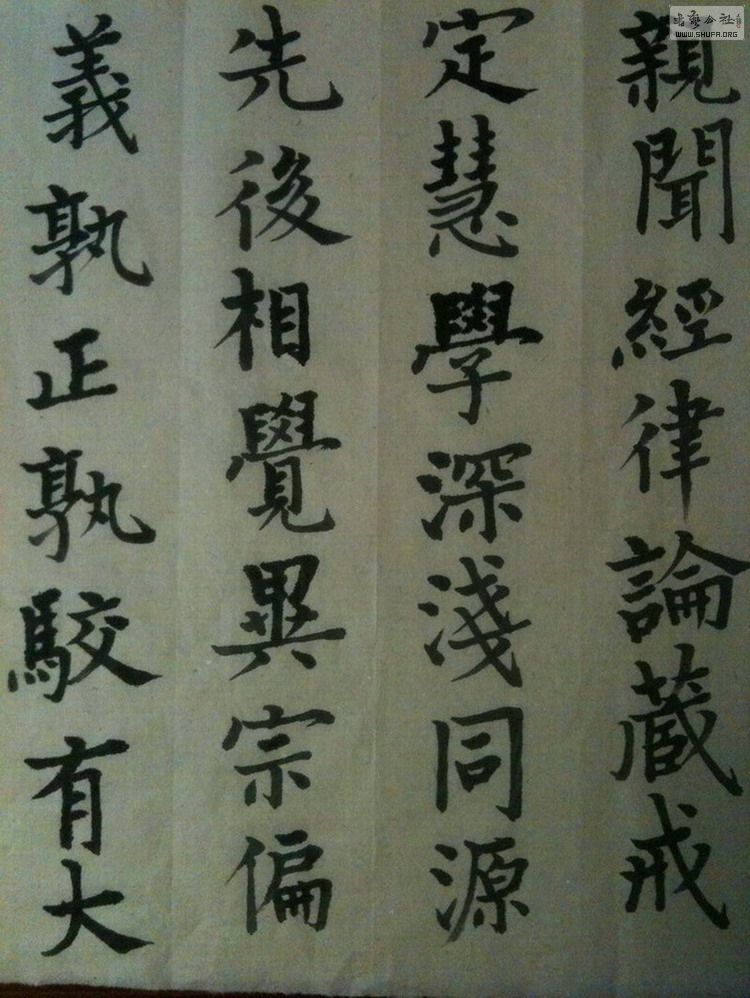 親聞經律論蔵戒
定慧學深淺同源
先後相覺異宗偏
義孰正孰駮有大
WWW.SHUFA.ORG